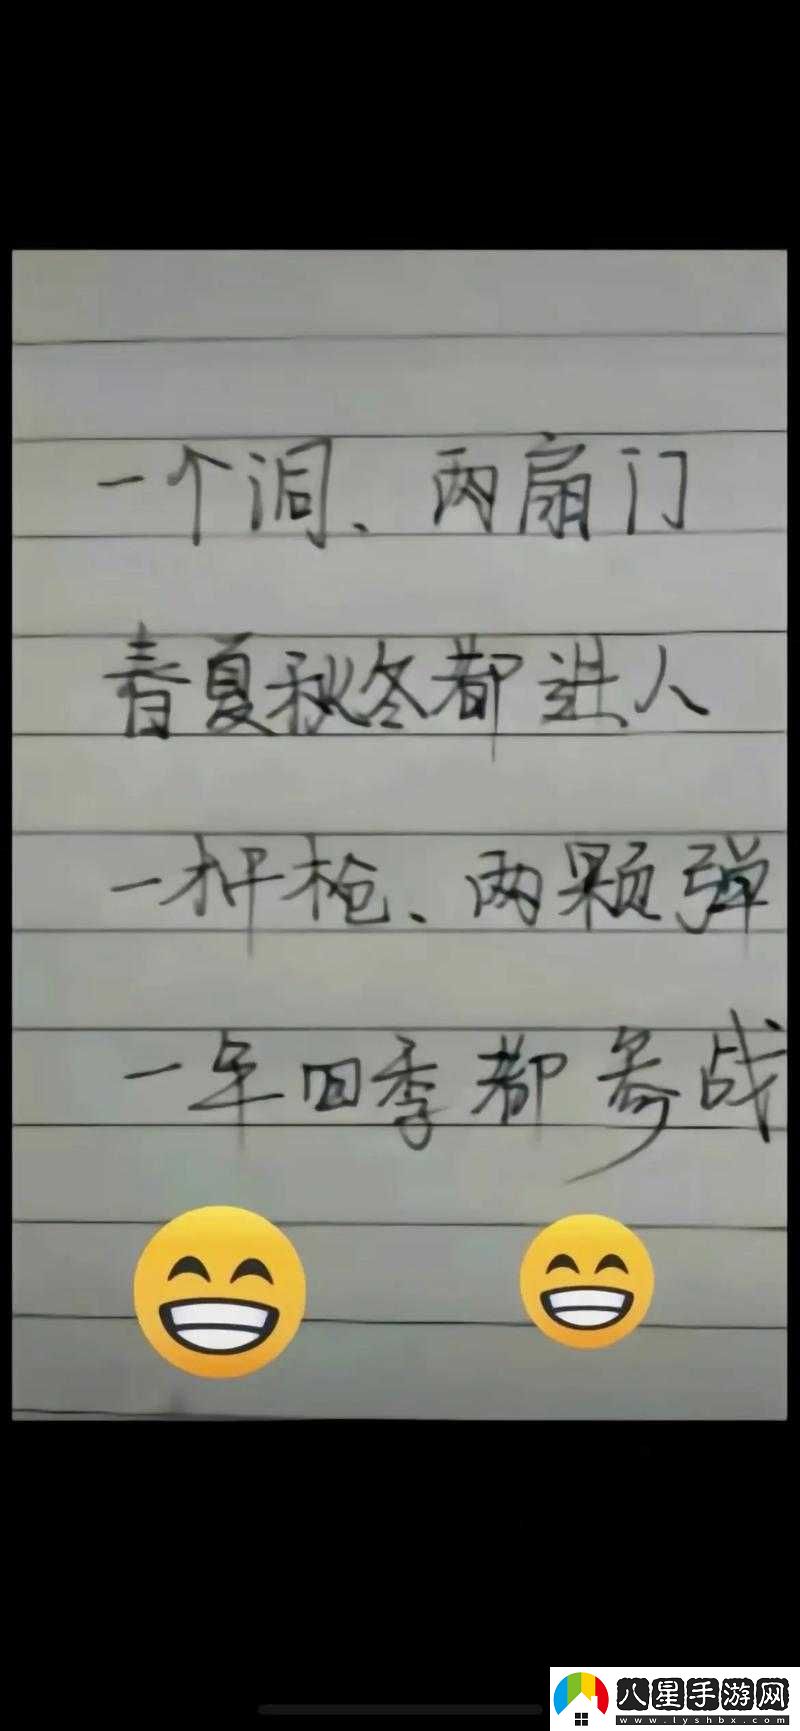 一个洞、两扇门
春夏秋冬都进人
一杆枪、两颗弹
一年四季都参战
八星手游网
www.lyshbx.com